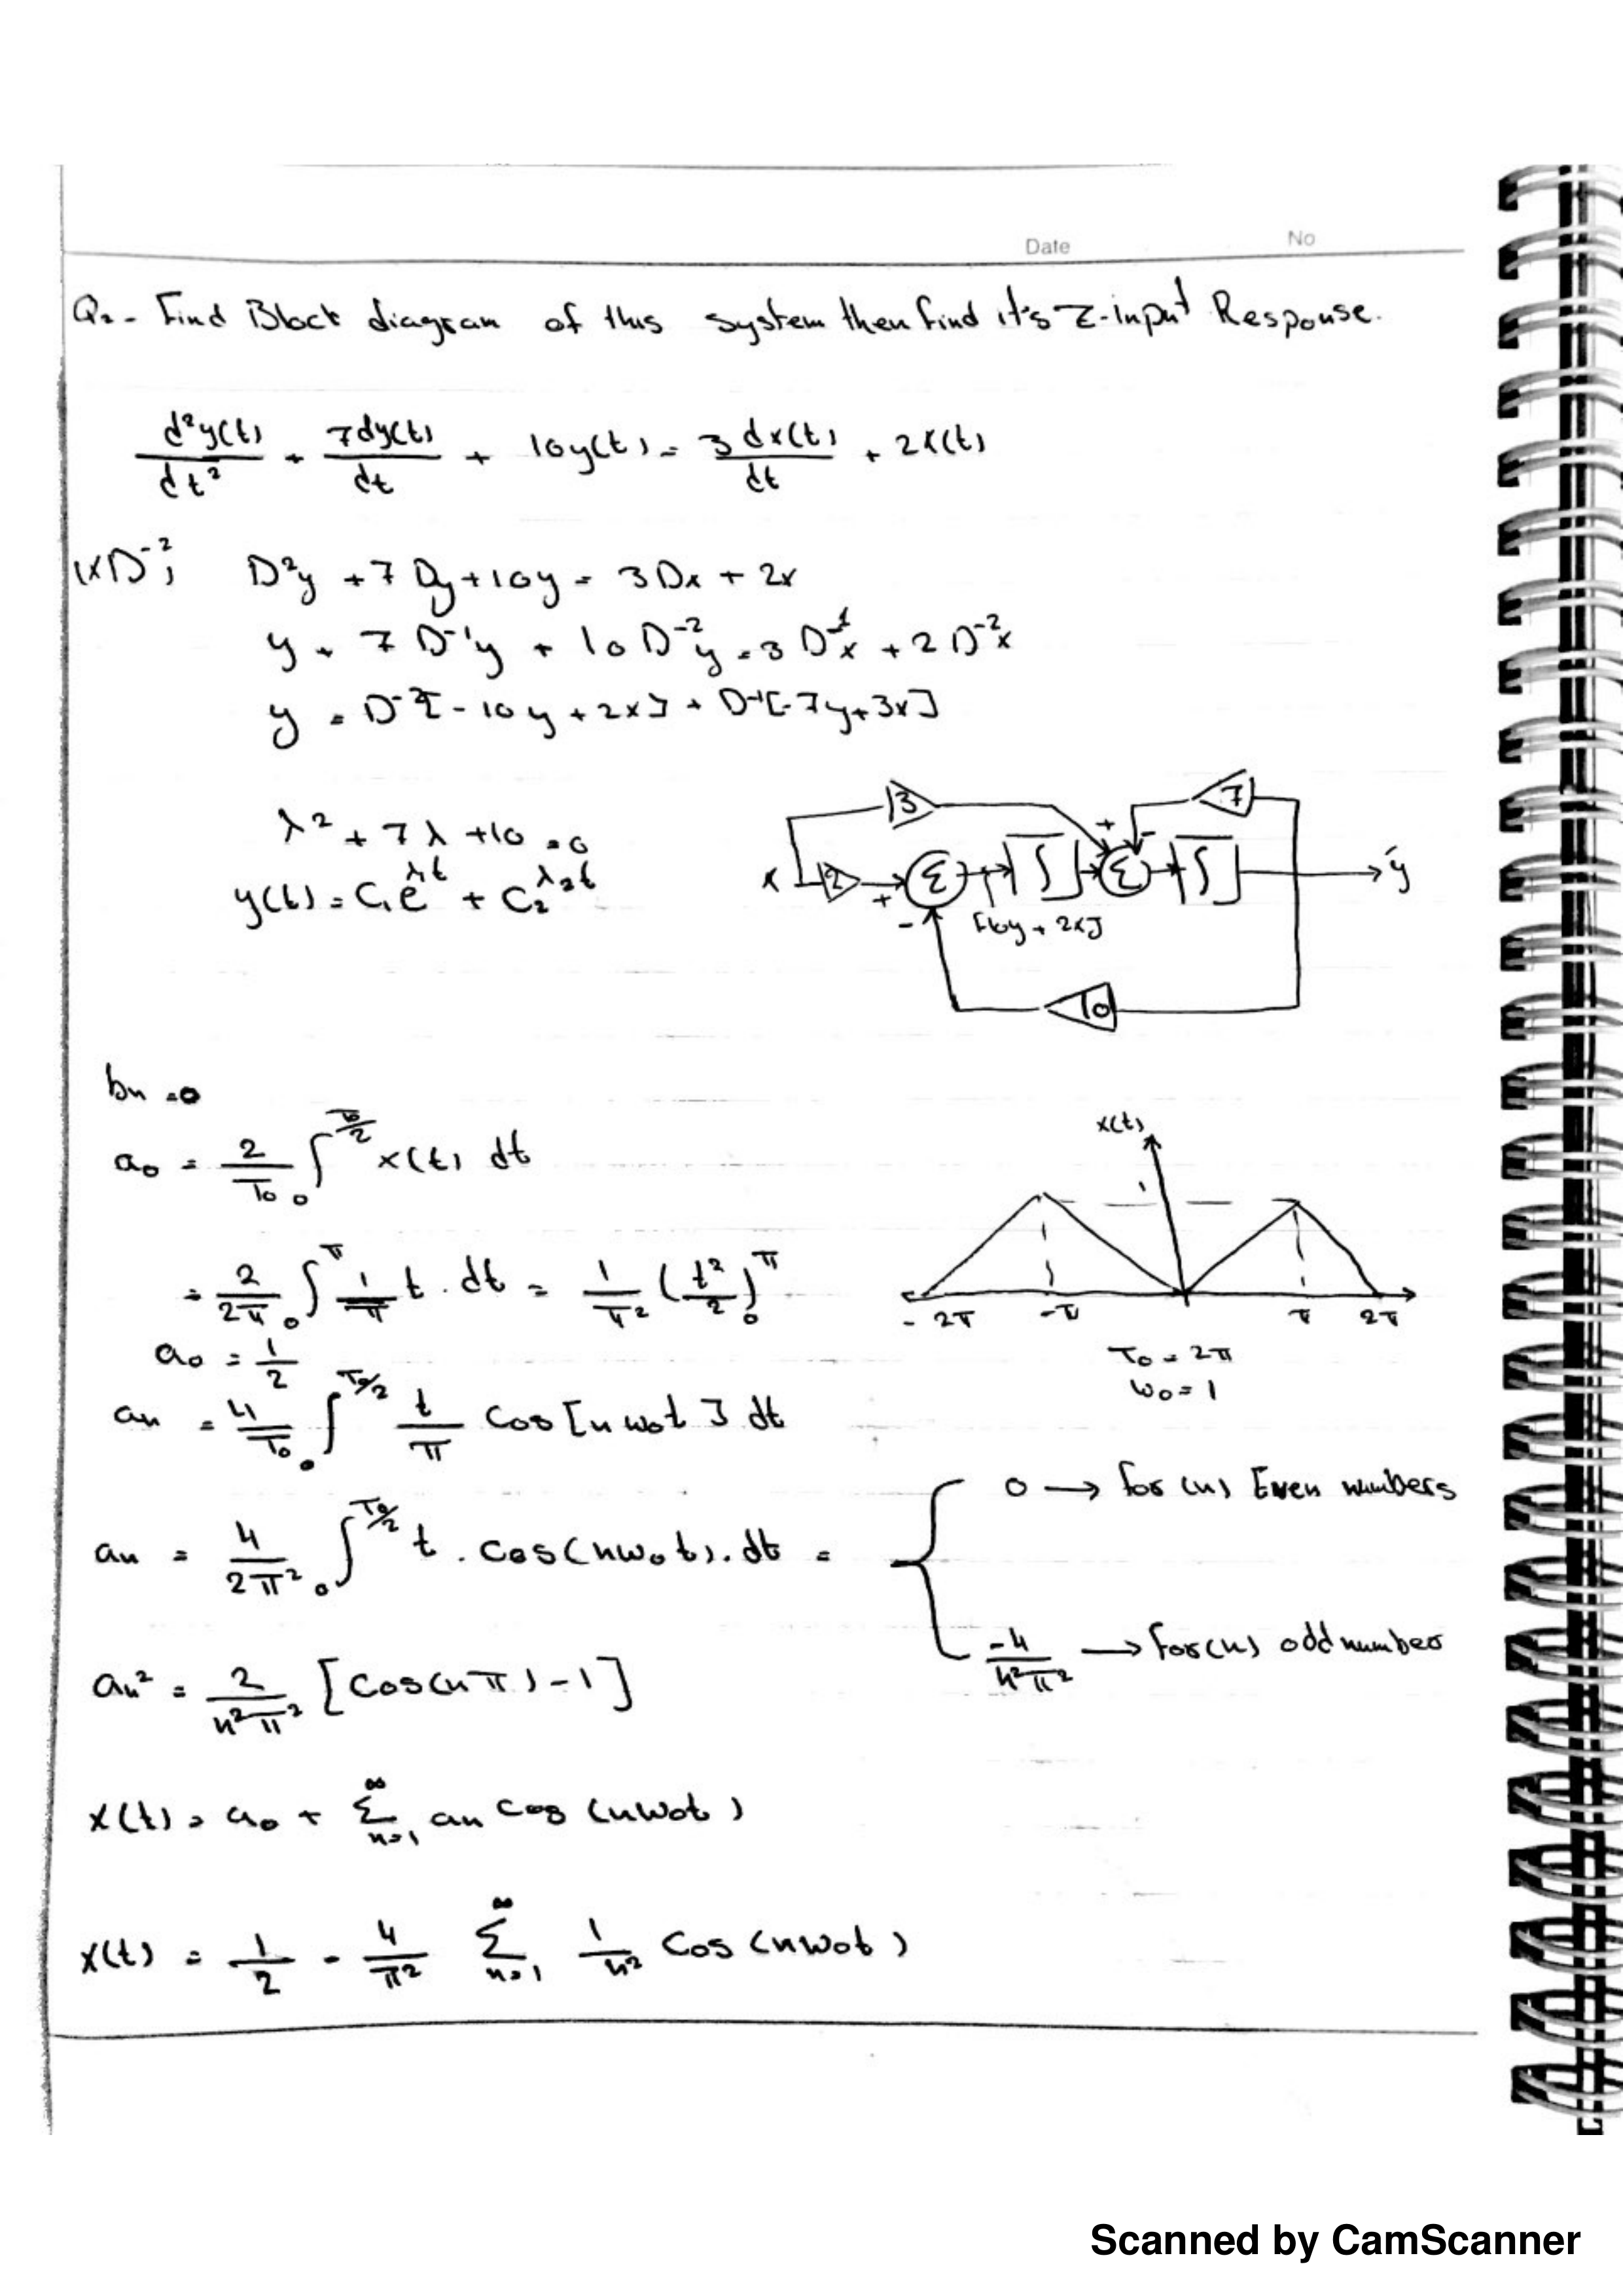 Date No
Q2- Find Block diagram of this system then find it's Z-input Response.
d²y(t)/dt² + 7dy(t)/dt + 10y(t) = 3dx(t)/dt + 2x(t)
(xD⁻²; D²y + 7Dy + 10y = 3Dx + 2x
y + 7D⁻¹y + 10D⁻²y = 3D⁻¹x + 2D⁻²x
y = D⁻²[-10y + 2x] + D⁻¹[-7y+3x]
λ² + 7λ + 10 = 0
y(t) = C₁e^λ₁t + C₂^λ₂t
3 7
+ -
x 2 Σ ∫ Σ ∫ y
+
- [-10y + 2x]
10
bn = 0
a₀ = 2/T₀ ∫₀^(T₀/2) x(t) dt
= 2/2π ∫₀^π 1/π t . dt = 1/π² (t²/2)₀^π
a₀ = 1/2
x(t)
1
-2π -π π 2π
T₀ = 2π
ω₀ = 1
an = 4/T₀ ∫₀^(T₀/2) t/π cos[nω₀t] dt
an = 4/2π² ∫₀^(T₀/2) t . cos(nω₀t).dt =
0 → for (n) Even numbers
-4/n²π² → for(n) odd number
an² = 2/n²π² [cos(nπ) - 1]
x(t) = a₀ + Σ_(n=1)^∞ an cos(nω₀t)
x(t) = 1/2 - 4/π² Σ_(n=1)^∞ 1/n² cos(nω₀t)
Scanned by CamScanner